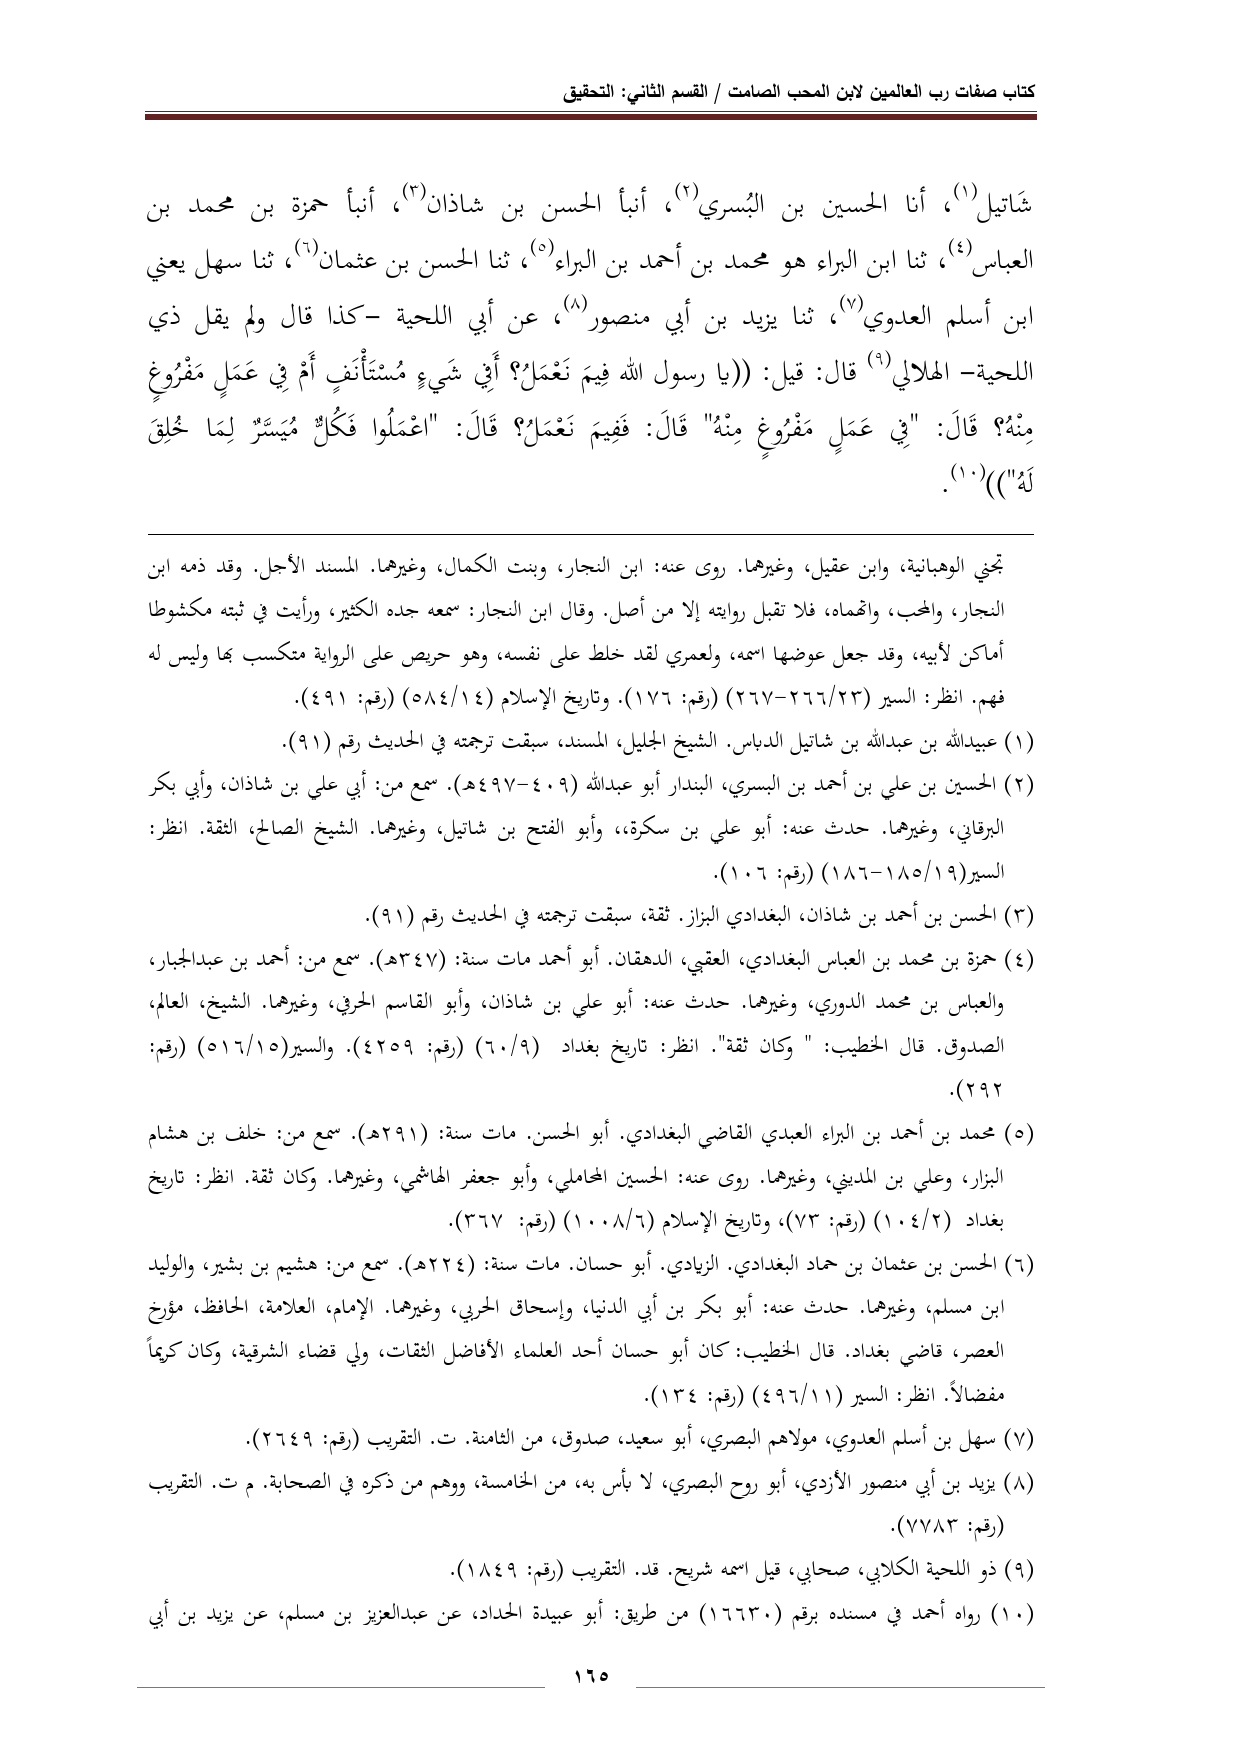 كتاب صفات رب العالمين لابن المحب الصامت / القسم الثاني: التحقيق
شَاتيل(١)، أنا الحسين بن البُسري(٢)، أنبأ الحسن بن شاذان(٣)، أنبأ حمزة بن محمد بن
العباس(٤)، ثنا ابن البراء هو محمد بن أحمد بن البراء(٥)، ثنا الحسن بن عثمان(٦)، ثنا سهل يعني
ابن أسلم العدوي(٧)، ثنا يزيد بن أبي منصور(٨)، عن أبي اللحية –كذا قال ولم يقل ذي
اللحية– الهلالي(٩) قال: قيل: ((يا رسول الله فِيمَ نَعْمَلُ؟ أَفِي شَيءٍ مُسْتَأْنَفٍ أَمْ فِي عَمَلٍ مَفْرُوغٍ
مِنْهُ؟ قَالَ: "فِي عَمَلٍ مَفْرُوغٍ مِنْهُ" قَالَ: فَفِيمَ نَعْمَلُ؟ قَالَ: "اعْمَلُوا فَكُلٌّ مُيَسَّرٌ لِمَا خُلِقَ
لَهُ"))(١٠).
تجني الوهبانية، وابن عقيل، وغيرهما. روى عنه: ابن النجار، وبنت الكمال، وغيرهما. المسند الأجل. وقد ذمه ابن
النجار، والمحب، واتهماه، فلا تقبل روايته إلا من أصل. وقال ابن النجار: سمعه جده الكثير، ورأيت في ثبته مكشوطا
أماكن لأبيه، وقد جعل عوضها اسمه، ولعمري لقد خلط على نفسه، وهو حريص على الرواية متكسب بها وليس له
فهم. انظر: السير (٢٦٦/٢٣–٢٦٧) (رقم: ١٧٦). وتاريخ الإسلام (٥٨٤/١٤) (رقم: ٤٩١).
(١) عبيدالله بن عبدالله بن شاتيل الدباس. الشيخ الجليل، المسند، سبقت ترجمته في الحديث رقم (٩١).
(٢) الحسين بن علي بن أحمد بن البسري، البندار أبو عبدالله (٤٠٩–٤٩٧هـ). سمع من: أبي علي بن شاذان، وأبي بكر
البرقاني، وغيرهما. حدث عنه: أبو علي بن سكرة،، وأبو الفتح بن شاتيل، وغيرهما. الشيخ الصالح، الثقة. انظر:
السير(١٨٥/١٩–١٨٦) (رقم: ١٠٦).
(٣) الحسن بن أحمد بن شاذان، البغدادي البزاز. ثقة، سبقت ترجمته في الحديث رقم (٩١).
(٤) حمزة بن محمد بن العباس البغدادي، العقبي، الدهقان. أبو أحمد مات سنة: (٣٤٧هـ). سمع من: أحمد بن عبدالجبار،
والعباس بن محمد الدوري، وغيرهما. حدث عنه: أبو علي بن شاذان، وأبو القاسم الحرفي، وغيرهما. الشيخ، العالم،
الصدوق. قال الخطيب: " وكان ثقة". انظر: تاريخ بغداد (٦٠/٩) (رقم: ٤٢٥٩). والسير(٥١٦/١٥) (رقم:
٢٩٢).
(٥) محمد بن أحمد بن البراء العبدي القاضي البغدادي. أبو الحسن. مات سنة: (٢٩١هـ). سمع من: خلف بن هشام
البزار، وعلي بن المديني، وغيرهما. روى عنه: الحسين المحاملي، وأبو جعفر الهاشمي، وغيرهما. وكان ثقة. انظر: تاريخ
بغداد (١٠٤/٢) (رقم: ٧٣)، وتاريخ الإسلام (١٠٠٨/٦) (رقم: ٣٦٧).
(٦) الحسن بن عثمان بن حماد البغدادي. الزيادي. أبو حسان. مات سنة: (٢٢٤هـ). سمع من: هشيم بن بشير، والوليد
ابن مسلم، وغيرهما. حدث عنه: أبو بكر بن أبي الدنيا، وإسحاق الحربي، وغيرهما. الإمام، العلامة، الحافظ، مؤرخ
العصر، قاضي بغداد. قال الخطيب: كان أبو حسان أحد العلماء الأفاضل الثقات، ولي قضاء الشرقية، وكان كريماً
مفضالاً. انظر: السير (٤٩٦/١١) (رقم: ١٣٤).
(٧) سهل بن أسلم العدوي، مولاهم البصري، أبو سعيد، صدوق، من الثامنة. ت. التقريب (رقم: ٢٦٤٩).
(٨) يزيد بن أبي منصور الأزدي، أبو روح البصري، لا بأس به، من الخامسة، ووهم من ذكره في الصحابة. م ت. التقريب
(رقم: ٧٧٨٣).
(٩) ذو اللحية الكلابي، صحابي، قيل اسمه شريح. قد. التقريب (رقم: ١٨٤٩).
(١٠) رواه أحمد في مسنده برقم (١٦٦٣٠) من طريق: أبو عبيدة الحداد، عن عبدالعزيز بن مسلم، عن يزيد بن أبي
١٦٥